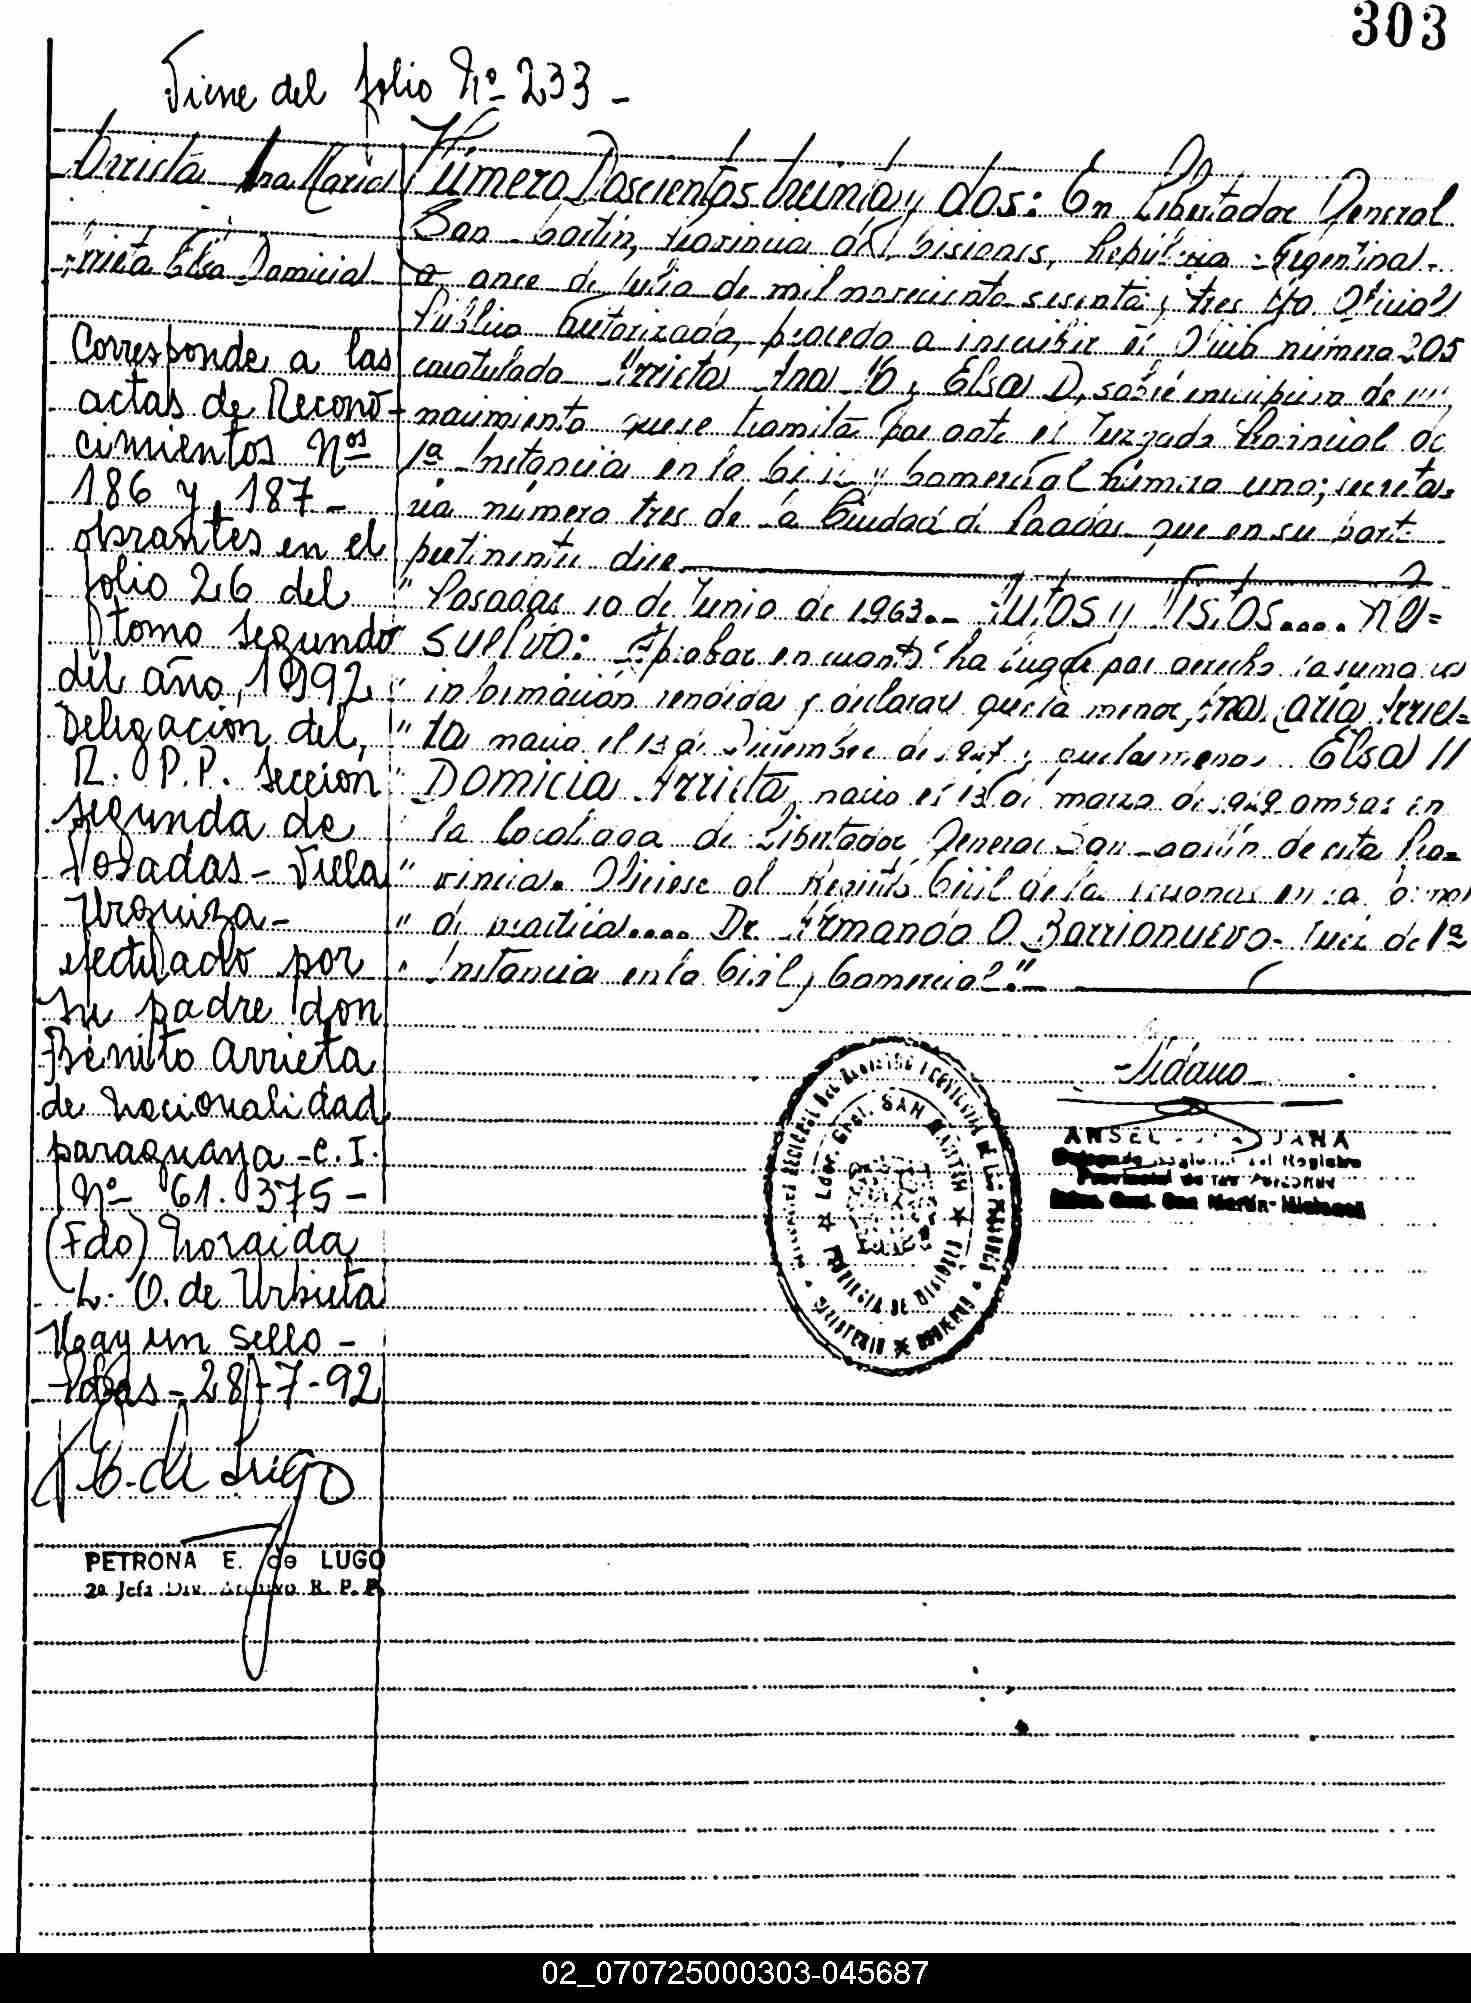 303
Viene del folio Nº 233 -
Arrieta Ana María
Arrieta Elsa Domicia
Corresponde a las
actas de Recono-
cimientos Nos
186 y 187 -
obrantes en el
folio 26 del
tomo segundo
del año, 1992
Delegación del,
R. P.P. Sección
segunda de
Posadas - Villa
Urquiza -
efectuado por
su padre don
Benito Arrieta
de nacionalidad
paraguaya - C. I.
Nº 61. 375 -
(Fdo) Zoraida
L. O. de Urbieta
Hay un sello -
Pdas - 28-7-92
E. de Lugo
PETRONA E. de LUGO
2º Jefa Div. Archivo R. P. P.
Número Doscientos treinta y dos: En Libertador General
San Martín, Provincia de Misiones, República Argentina
a once de Julio de mil novecientos sesenta y tres Yo Oficial
Público Autorizado, procedo a inscribir el Oficio número 205
caratulado "Arrieta Ana M. y Elsa D, sobre inscripción de
nacimiento que se tramita por ante el Juzgado Provincial de
1ª Instancia en lo Civil y Comercial número uno; secreta-
ria número tres de la Ciudad de Posadas que en su parte
pertinente dice
" Posadas 10 de Junio de 1963.- Autos y Vistos.... RE=
SUELVO: Aprobar en cuanto ha lugar por derecho la sumaria
" información rendida y declarar que la menor, Ana María Arrie=
" ta nacio el 13 de Diciembre de 1947 y que la menor Elsa "
" Domicia Arrieta, nacio el 13 de marzo de 1949 ambas en
" la localidad de Libertador General San Martín de esta Pro-
" vincia. Oficiese al Registro Civil de las Personas en la forma
" de practica.... Dr Armando O. Barrionuevo - Juez de 1ª
" Instancia en lo Civil y Comercial."-
Ldor. Gral. SAN MARTIN
PROVINCIA DE MISIONES
Delegado Regional del Registro
Provincial de las Personas
Ldor. Gral. San Martín - Misiones
02_070725000303-045687